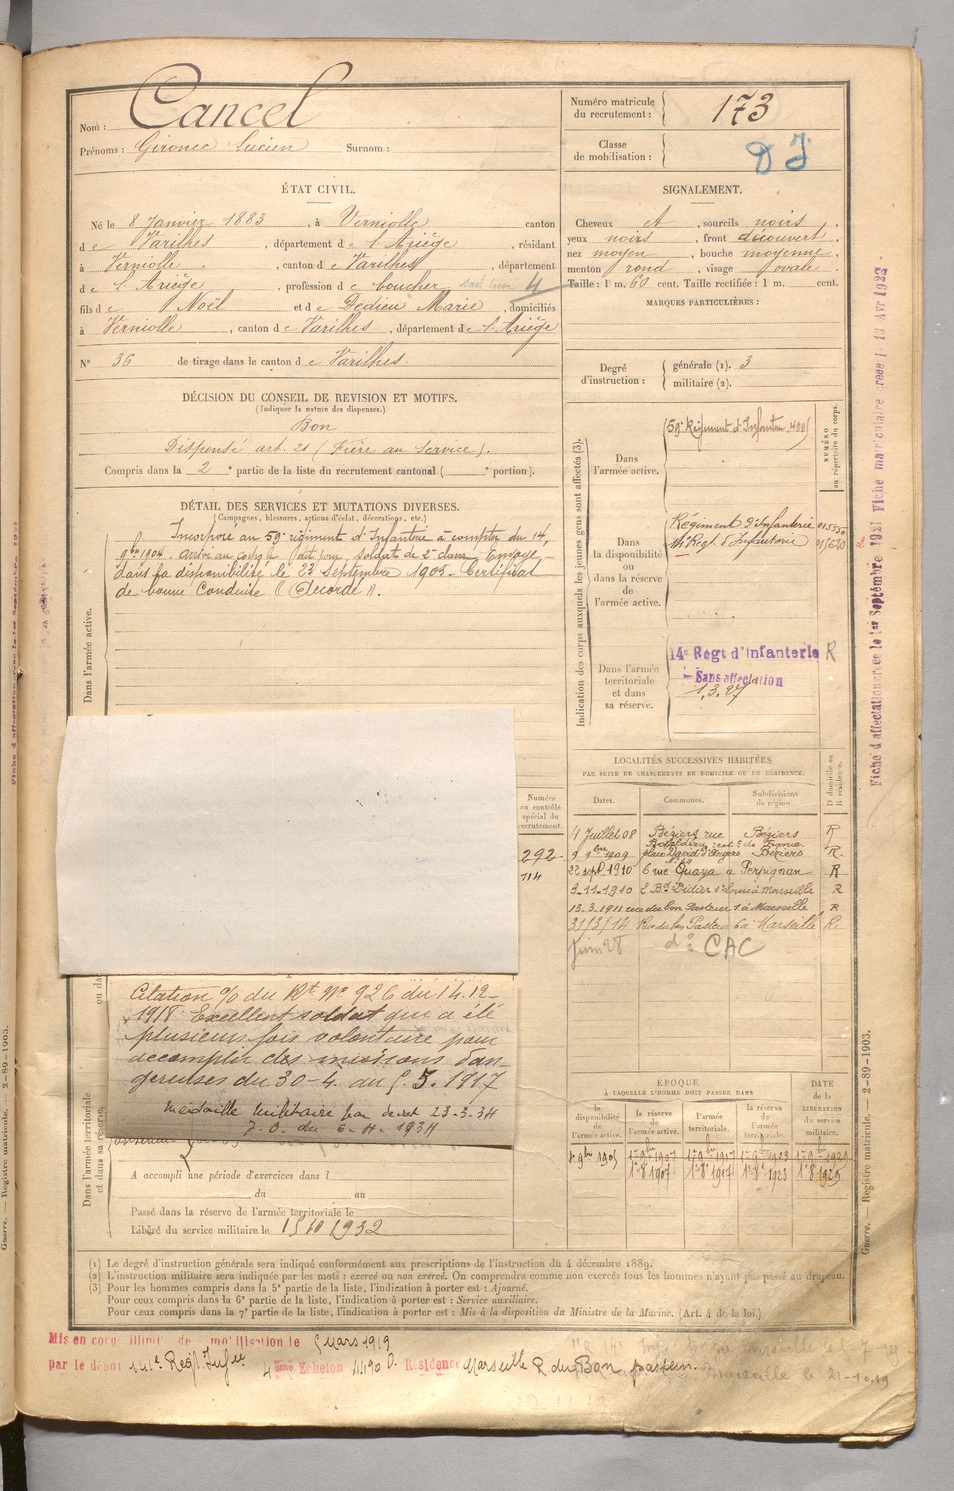 Nom : Cancel
Prénoms : Gironce Lucien Surnom :
Numéro matricule du recrutement : 173
Classe de mobilisation :
D J
ÉTAT CIVIL.
Né le 8 Janvier 1883, à Verniolle canton
de Varilhes, département de l'Ariège, résidant
à Verniolle, canton de Varilhes, département
de l'Ariège, profession de boucher 4
fils de Noël et de Dedieu Marie, domiciliés
à Verniolle, canton de Varilhes, département de l'Ariège
N° 36 de tirage dans le canton de Varilhes
SIGNALEMENT.
Cheveux et, sourcils noirs.
yeux noirs, front découvert.
nez moyen, bouche moyenne.
menton rond, visage ovale.
Taille : 1 m. 60 cent. Taille rectifiée : 1 m. cent.
MARQUES PARTICULIÈRES :
Degré d'instruction : générale (1). 3
militaire (2).
DÉCISION DU CONSEIL DE REVISION ET MOTIFS.
(Indiquer la nature des dispenses.)
Bon
Dispensé art. 21 (Frère au Service).
Compris dans la 2e partie de la liste du recrutement cantonal ( e portion).
DÉTAIL DES SERVICES ET MUTATIONS DIVERSES.
(Campagnes, blessures, actions d'éclat, décorations, etc.)
Dans l'armée active.
Incorporé au 59e régiment d'Infanterie à compter du 14
9bre 1904. arrivé au corps le dit jour soldat de 2e classe Envoyé
dans la disponibilité le 23 Septembre 1905. Certificat
de bonne Conduite "Accordé".
Indication des corps auxquels les jeunes gens sont affectés (3).
NUMÉRO au répertoire du corps.
Dans l'armée active.
59e Régiment d'Infanterie
Dans la disponibilité ou dans la réserve de l'armée active.
Régiment d'Infanterie
Dans l'armée territoriale et dans sa réserve.
14e Régt d'infanterie R
Sans affectation
1.3.27
Fiche d'affectation créée le 1er Septembre 1921 Fiche matriculaire créée le 13 Avr 1922
LOCALITÉS SUCCESSIVES HABITÉES
PAR SUITE DE CHANGEMENTS DE DOMICILE OU DE RÉSIDENCE.
D domicile ou R résidence.
Dates. Communes. Subdivisions de région.
4 Juillet 08 Béziers rue Béziers R
9 9bre 1909 place David d'Angers Béziers R.
22 sept 1910 6 rue Quaya à Perpignan R
3-11-1910 2 Bd Didier St Louis à Marseille R
13-3-1911 rue du bon Pasteur 1 à Marseille R
31/3/14 Rue du bon Pasteur 6 à Marseille R.
Juin 28 do CAC
Numéro au contrôle spécial du recrutement.
292
114
Citation % du Rt N° 926 du 14.12-
1918 Excellent soldat qui a été
plusieurs fois volontaire pour
accomplir des missions dan-
gereuses du 30-4. au 5. 5. 1917
Médaille Militaire par décret 23-3-34
J.O. du 6-4-1934
Dans l'armée territoriale et dans sa réserve.
A accompli une période d'exercices dans l
du au
Passé dans la réserve de l'armée territoriale le
Libéré du service militaire le 15 10 1932
ÉPOQUE
À LAQUELLE L'HOMME DOIT PASSER DANS
la disponibilité de l'armée active. la réserve de l'armée active. l'armée territoriale. la réserve de l'armée territoriale. DATE de la LIBÉRATION du service militaire.
1er 9bre 1905 1er 9bre 1907 1er 9bre 1917 1er 9bre 1923 1er 9bre 1929
1er 8bre 1907 1er 8bre 1917 1er 8bre 1923
(1) Le degré d'instruction générale sera indiqué conformément aux prescriptions de l'instruction du 4 décembre 1889.
(2) L'instruction militaire sera indiquée par les mots : exercé ou non exercé. On comprendra comme non exercés tous les hommes n'ayant pas passé au drapeau.
(3) Pour les hommes compris dans la 5e partie de la liste, l'indication à porter est : Ajourné.
Pour ceux compris dans la 6e partie de la liste, l'indication à porter est : Service auxiliaire.
Pour ceux compris dans la 7e partie de la liste, l'indication à porter est : Mis à la disposition du Ministre de la Marine. (Art. 4 de la loi.)
Guerre. — Registre matricule. — 2-89-1903.
Mis en congé illimité de démobilisation le 5 Mars 1919
par le dépôt 141e Régt Infie 4ème Echelon 4490 D. Résidence Marseille R. du Bon pasteur.
Marseille le 21-10-19